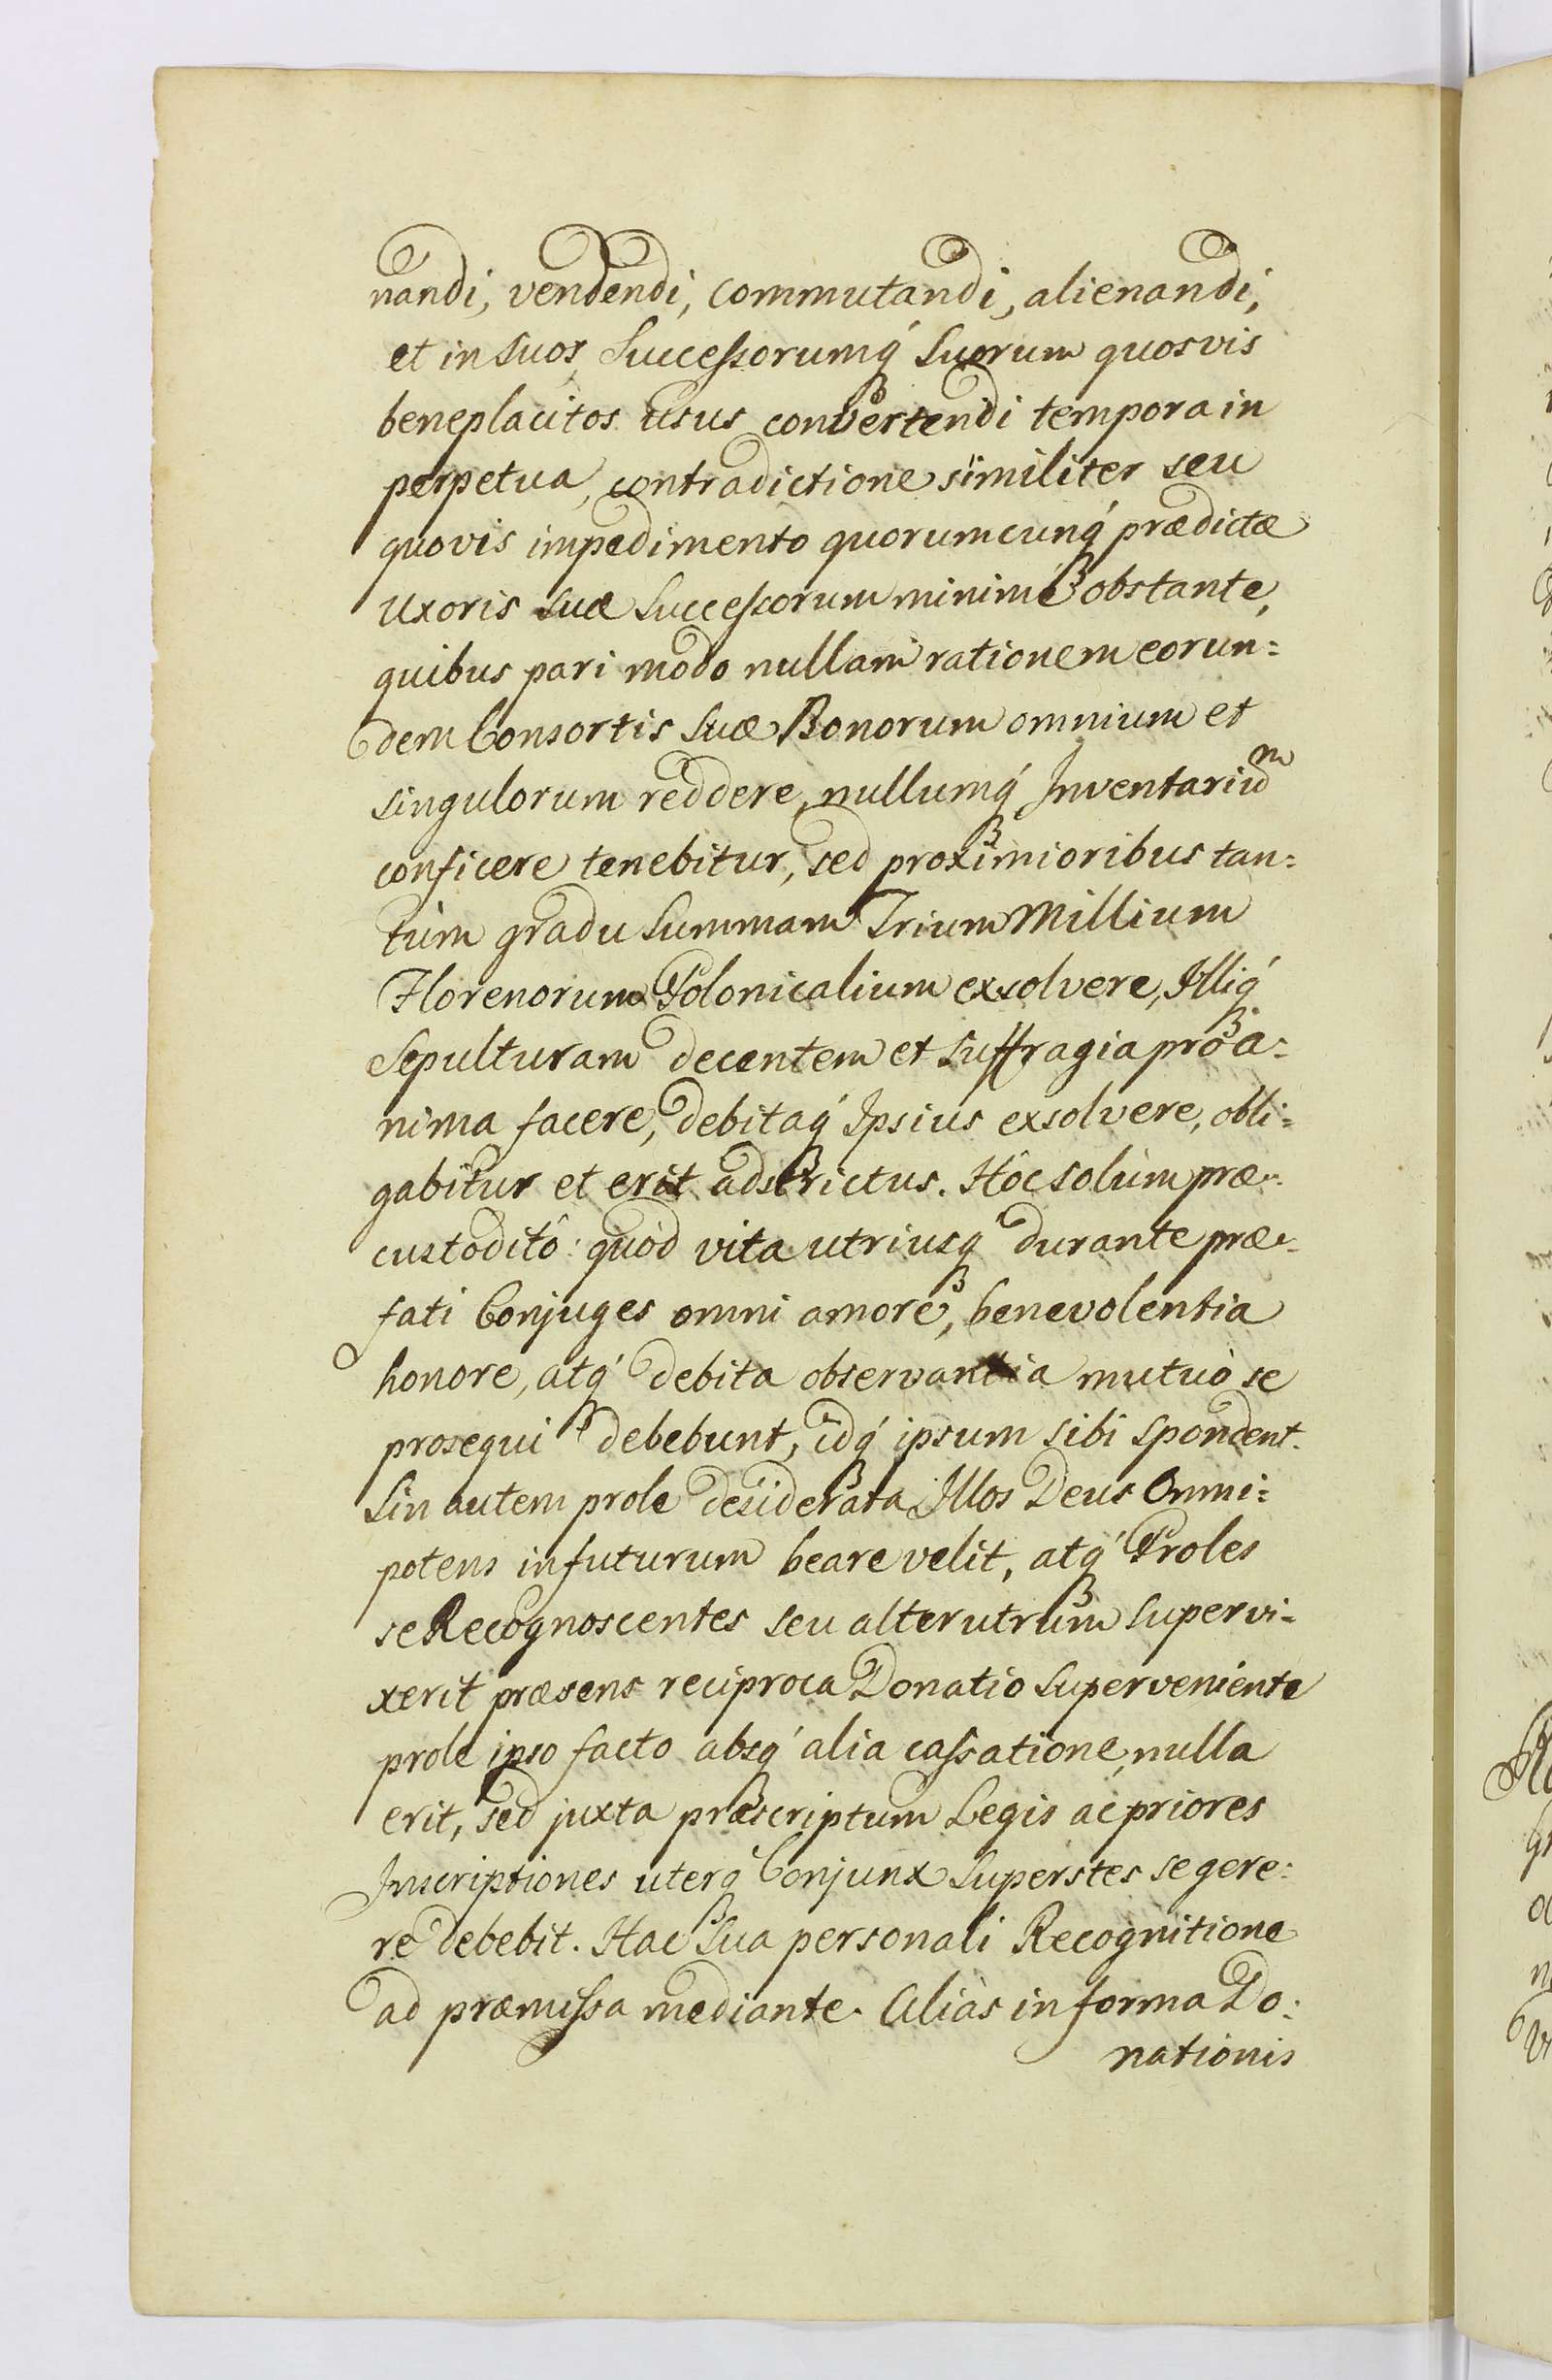 nandi, vendendi, commutandi, alienandi,
et in suos, Successorumq́ suorum quosvis
beneplacitos usus convertendi tempora in
perpetua, contradictione similiter seu
quovis impedimento quorumcunq́ prædictæ
Uxoris suæ Successorum minimè obstante,
quibus pari modo nullam rationem eorun=
dem Consortis suæ Bonorum omnium et
singulorum reddere, nullumq́ Inventariũm
conficere tenebitur, sed proximioribus tan=
tùm gradu Summam Trium Millium
Florenorum Polonicalium exsolvere, Illiq́
Sepulturam decentem et suffragia pro a=
nima facere, debitaq́ Ipsius exsolvere, obli=
gabitur et erit adstrictus. Hôc solùm præ=
custoditô: quòd vita utriusq́ durante præ=
fati Conjuges omni amore, benevolentia
honore, atq́ debita observantia mutuò se
prosequi debebunt, idq́ ipsum sibi spondent.
Sin autem prole desiderata Illos Deus Omni=
potens in futurum beare velit, atq́ Proles
se Recognoscentes seu alterutrum supervi=
xerit præsens reciproca Donatio superveniente
prole ipso facto absq́ alia cassatione, nulla
erit, sed juxta præscriptum Legis ac priores
Inscriptiones uterq́ Conjunx superstes se gere=
re debebit. Hac sua personali Recognitione
ad præmissa mediante. Aliàs in forma Do=
nationis